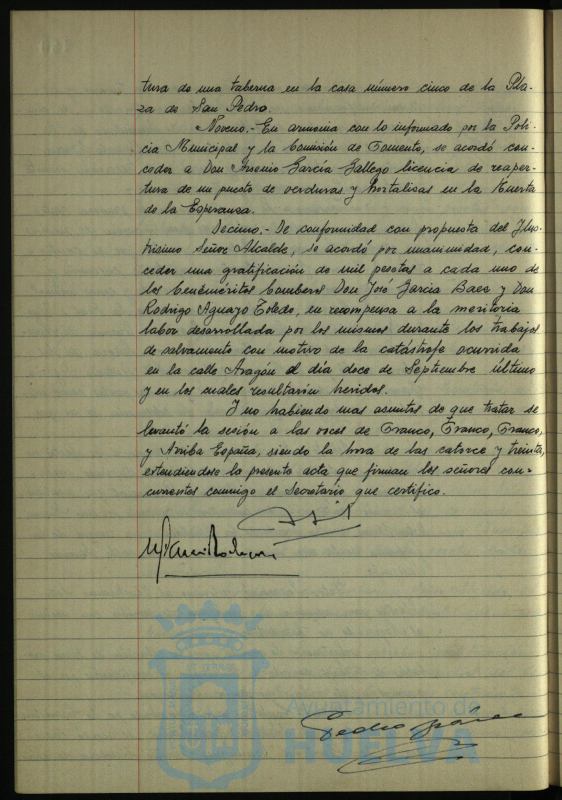 tura de una taberna en la casa número cinco de la Pla-
za de San Pedro.
Noveno.- En armonia con lo informado por la Poli-
cia Municipal y la Comisión de Fomento, se acordó con-
ceder a Don Arsenio García Gallego licencia de reaper-
tura de un puesto de verduras y hortalisas en la Huerta
de la Esperanza.
Decimo.- De conformidad con propuesta del Ylus-
trisimo Señor Alcalde, se acordó por unanimidad, con-
ceder una gratificación de mil pesetas a cada uno de
los beneméritos bomberos Don José Garcia Baez y Don
Rodrigo Aguazo Toledo, en recompensa a la meritoria
labor desarrollada por los mismos durante los trabajos
de salvamento con motivo de la catástrofe ocurrida
en la calle Aragón el día doce de Septiembre último
y en los cuales resultaron heridos.
Y no habiendo mas asuntos de que tratar se
levantó la sesión a las voces de Franco, Franco, Franco,
y Arriba España, siendo la hora de las catorce y treinta,
extendiendose la presente acta que firman los señores con-
currentes conmigo el Secretario que certifico.
Ayuntamiento de
HUELVA
Pedro